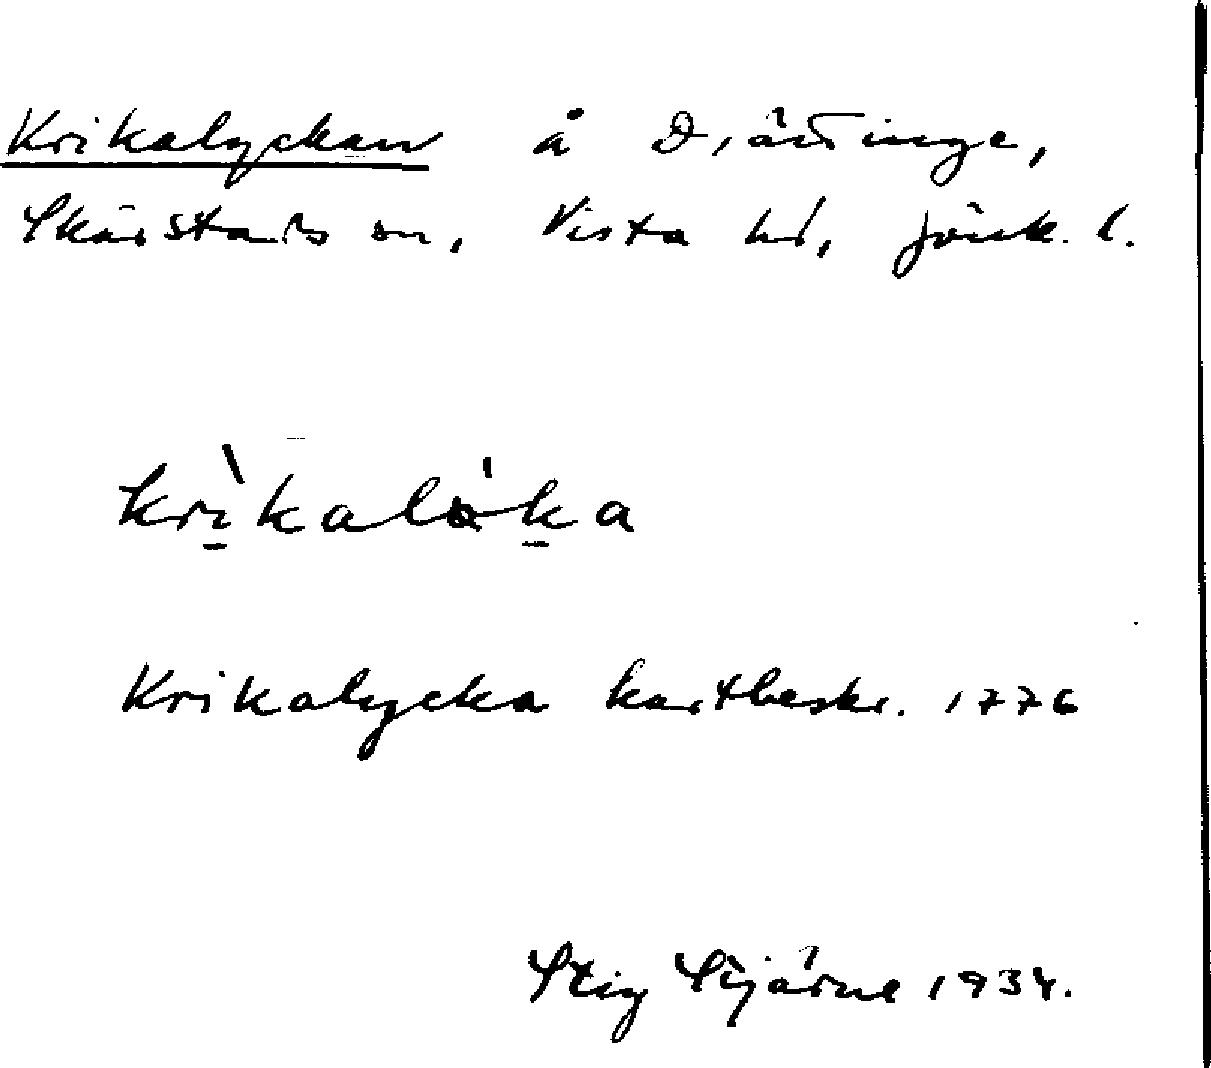 Krikalyckan å Drättinge,
Skärstads sn, Vista hd, Jönk. l.
krìkalöka
Krikalycka kartbeskr. 1776
Stig Stjärne 1934.